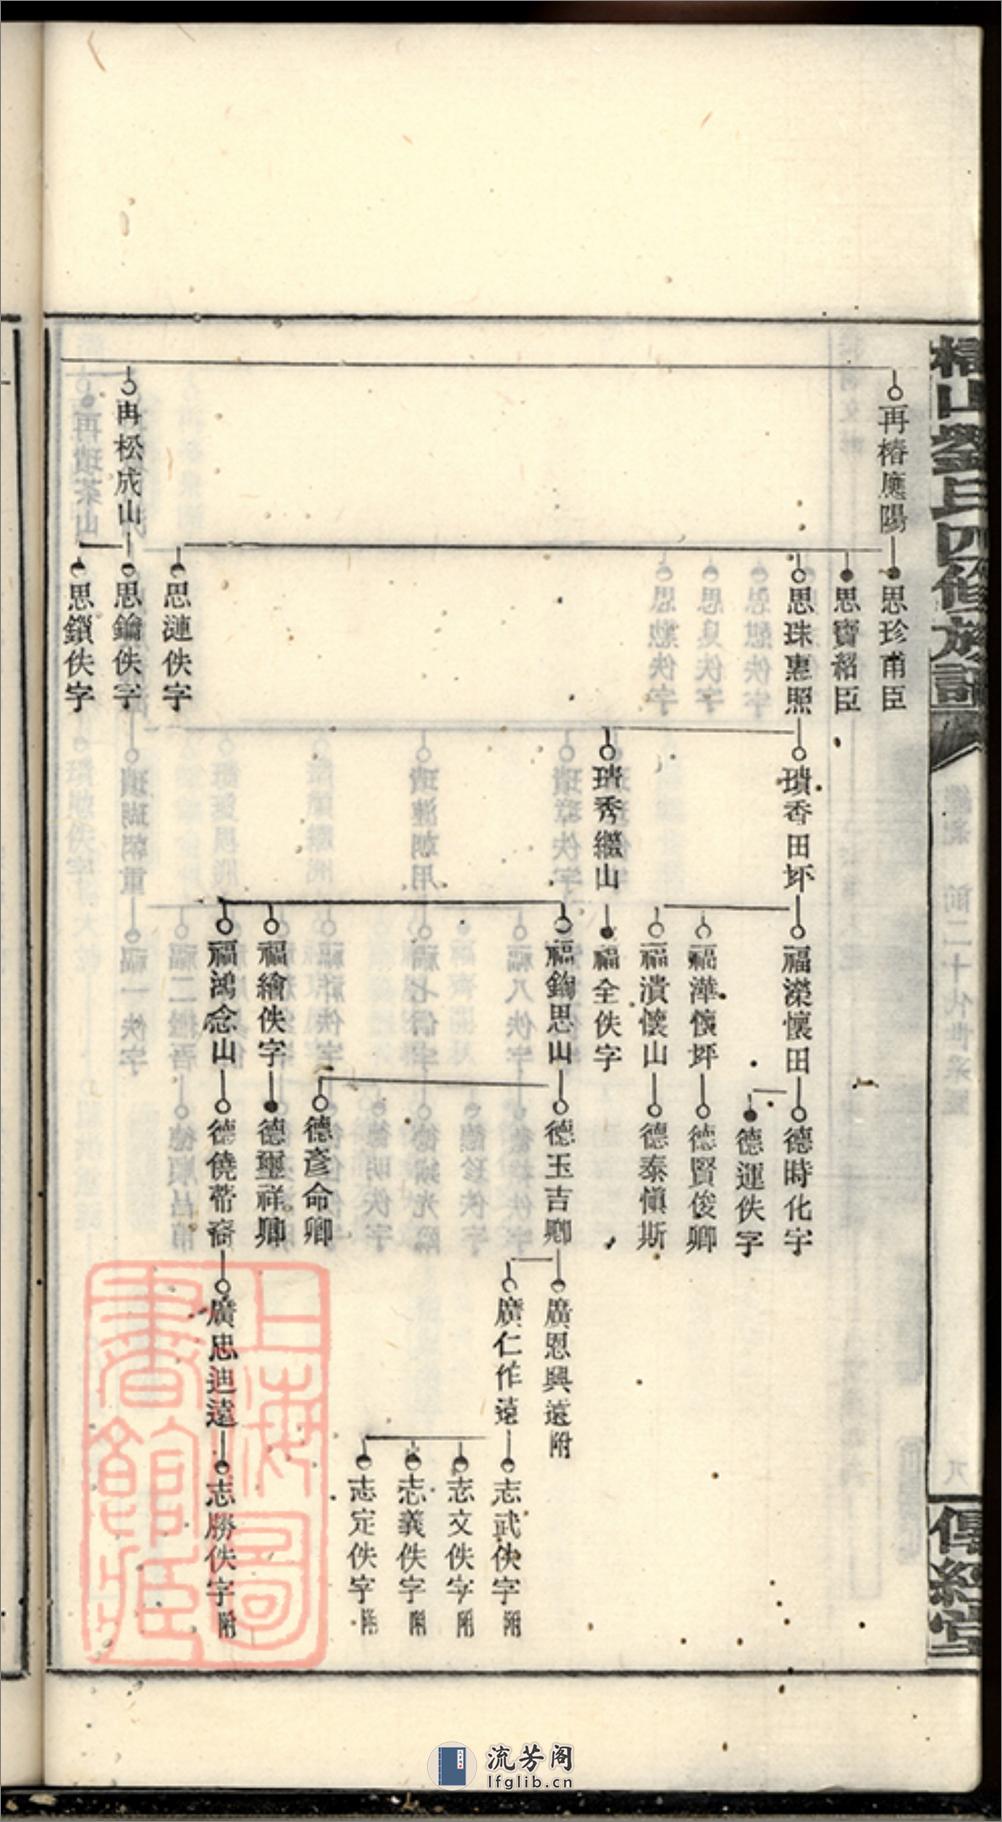 劉氏四修族譜
前二十代世系
傳經堂
再椿應陽
思珍甫臣
思寶紹臣
思珠惠照
思漣佚字
再松成山
思鑰佚字
思鎖佚字
璝香田坏
璝秀繼山
福濚懷田
福澕懷坪
福潰懷山
福全佚字
福鋾思山
福繪佚字
福鴻念山
德時化字
德運佚字
德賢俊卿
德泰愼斯
德玉吉卿
德彥命卿
德璽祥卿
德僥蒂裔
廣恩興遠附
廣仁作遠
廣忠迪遠
志武佚字附
志文佚字附
志義佚字附
志定佚字附
志勝佚字附
上海圖書館藏
流芳阁
lfglib.cn